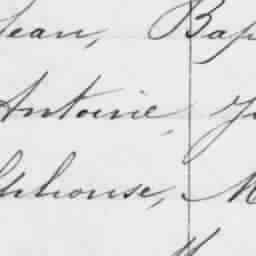 Jean, Bap
Antoine, J
Alphonse, M